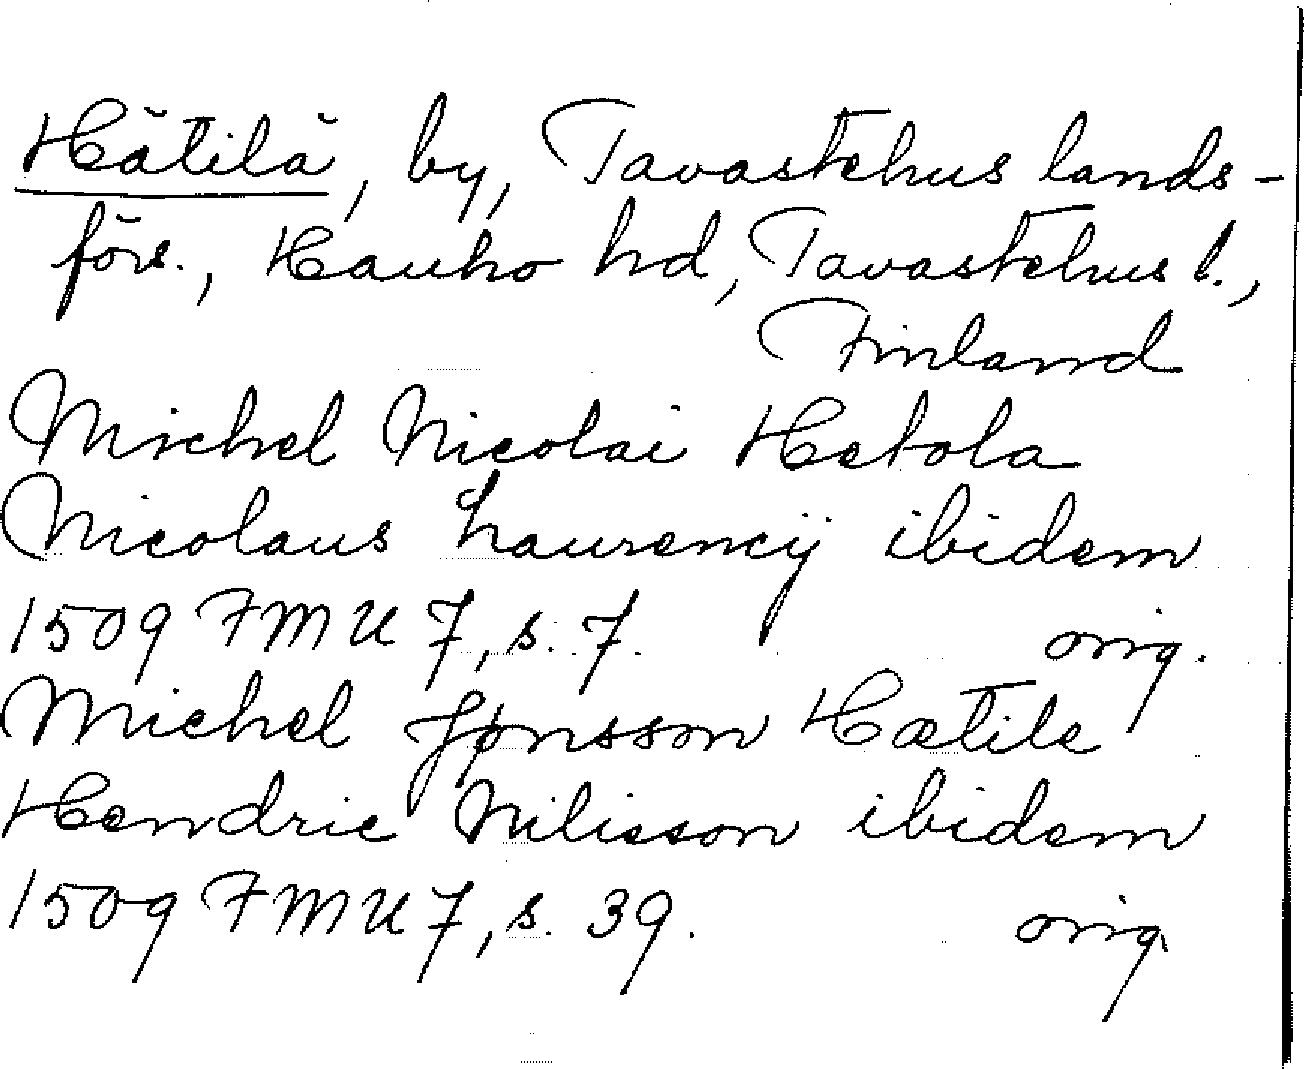 Hätilä, by, Tavastehus lands-
förs., Hauho hd, Tavastehus l.,
Finland
Michel Nicolai Hetola
Nicolaus Laurencij ibidem
1509 FMU 7, s. 7. orig.
Michel Jönsson Hætile
Hendric Nilisson ibidem
1509 FMU 7, s. 39. orig.